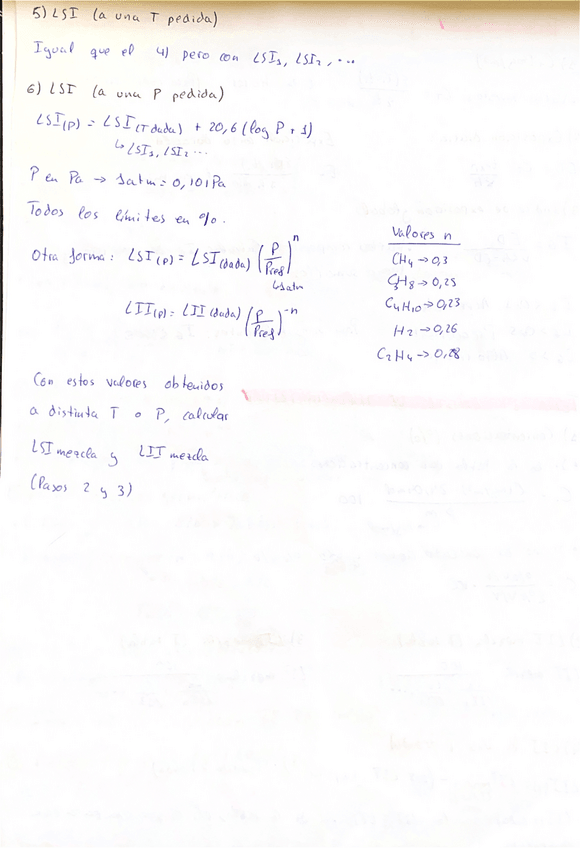 5) LSI (a una T pedida)
Igual que el 4) pero con LSI₁, LSI₂, ...
6) LSI (a una P pedida)
LSI(P) = LSI(T dada) + 20,6 (log P + 1)
↳ LSI₁, LSI₂ ...
P en Pa → 1atm = 0,101Pa
Todos los límites en %.
Otra forma: LSI(P) = LSI(dada) (P/Pref)^n
↳1atm
LII(P) = LII(dada) (P/Pref)^-n
Valores n
CH4 → 0,3
C3H8 → 0,25
C4H10 → 0,23
H2 → 0,26
C2H4 → 0,28
Con estos valores obtenidos
a distinta T o P, calcular
LSI mezcla y LII mezcla
(Pasos 2 y 3)